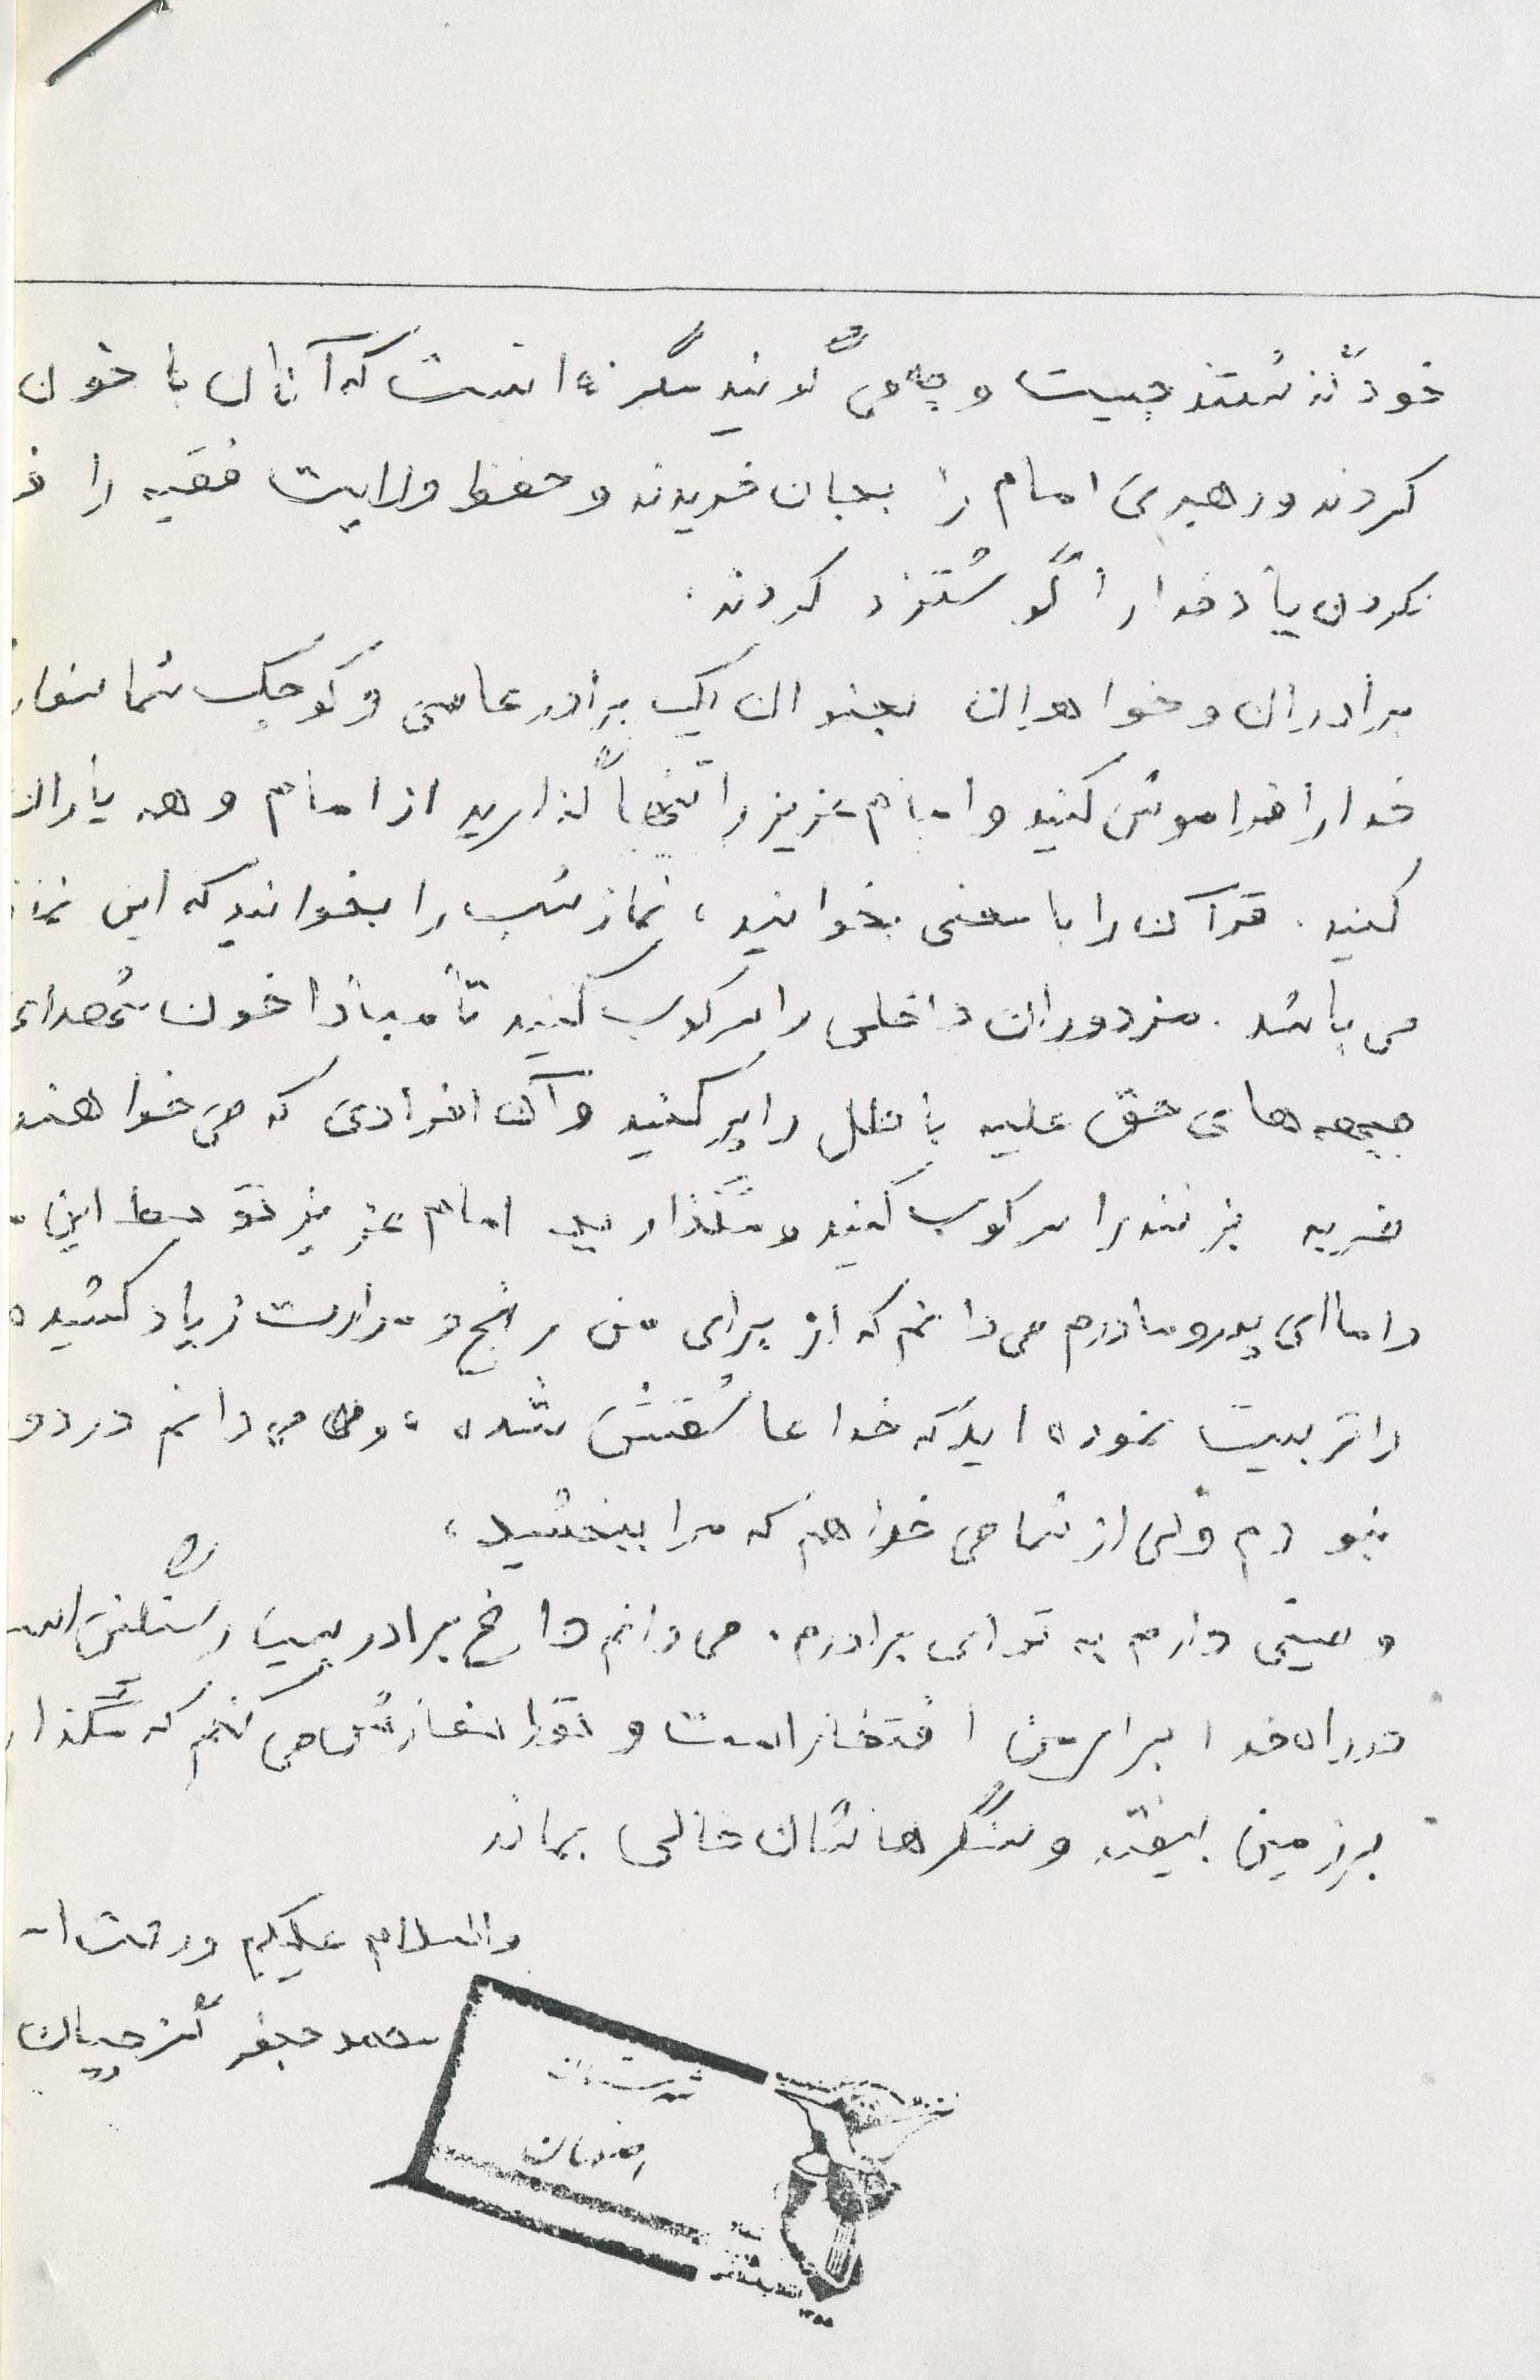 خود نوشتند چیست و چه می گویند مگر نه اینست که آنان با خون
کردند و رهبری امام را بجان خریدند و حفظ ولایت فقیه را
نکردن یاد خدا را گوشزد کردند.
برادران و خواهران بعنوان یک برادر عاصی و کوچک شما سفار
خدا را فراموش کنید و امام عزیز را تنها گذارید از امام و همه یاران
کنید. قرآن را با معنی بخوانید، نماز شب را بخوانید که این نماز
می باشد. مزدوران داخلی را سرکوب کنید تا مبادا خون شهدای
جبهه های حق علیه باطل را پر کنید و آن افرادی که می خواهند
ضربه بزنند را سرکوب کنید و نگذارید امام عزیز توسط این
و اما ای پدر و مادرم می دانم که از برای من رنج و مرارت زیاد کشیده
را تربیت نموده اید که خدا عاشقش شده، و می دانم در دو
نبودم ولی از شما می خواهم که مرا ببخشید،
وصیتی دارم به تو ای برادرم. می دانم داغ برادر بسیار سنگین اس
در راه خدا برای من افتخار است و تو را سفارش می کنم که نگذار
بر زمین بیفتد و سنگرهاشان خالی بماند
والسلام علیکم و رحمت ا-
محمد جعفر گنزچیان
اصفهان